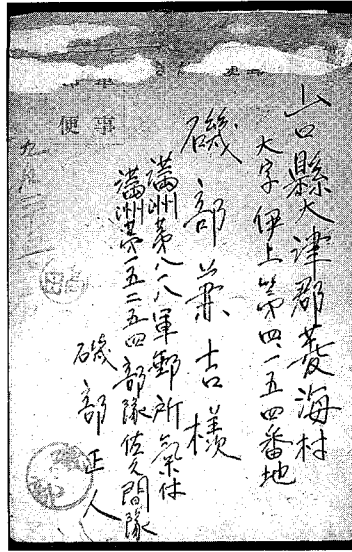 事
便
山口縣大津郡菱海村
大字伊上第四一五四番地
磯部兼吉様
満州第八八八軍郵所氣付
満州第一五二五四部隊佐久間隊
磯部正人